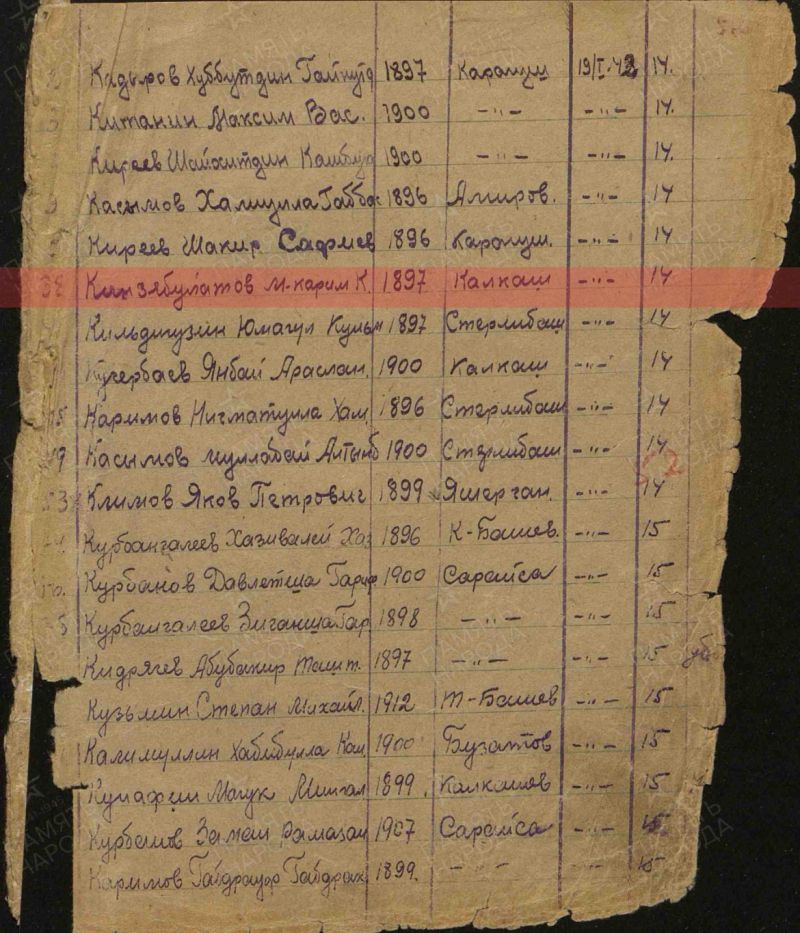 Кадыров Хуббутдин Гайнутд 1897 Карагуш 19/I-42 14.
Китанин Максим Вас. 1900 -"- 14.
Киреев Шайхитдин 1900 -"- -"- 14.
Касымов Хамидулла Габбас 1896 Амиров. -"- 14
Киреев Шакир Сафиев 1896 Карагуш. -"- 14
38 Кинзябулатов М-карим К. 1897 Калкаш -"- 14
Кильдигузин Юмагул Кульм 1897 Стерлибаш -"- 14
Кучербаев Янбай Араслан. 1900 Калкаш -"- 14
Каримов Нигматулла Хам 1896 Стерлибаш -"- 14
Касымов муллабай Алтынб 1900 Стерлибаш -"- 14
Климов Яков Петрович 1899 Яшерган. -"- 14
Курбангалеев Хазивалей Хаз 1896 К-Башев. -"- 15
Курбанов Давлетша Гариф 1900 Сарайса -"- 15
Курбангалеев Зиганша Гар. 1898 -"- -"- 15
Кидрячев Абубакир 1897 -"- -"- 15
Кузьмин Степан Михайл. 1912 Т-Башев -"- 15
Калимуллин Хабибулла Кал 1900 Бузатов -"- 15
Мингал 1899. Калкашев -"- 15
Заман Рамазан 1907 Сарайса -"- 15
Каримов 1899. -"- -"- 15